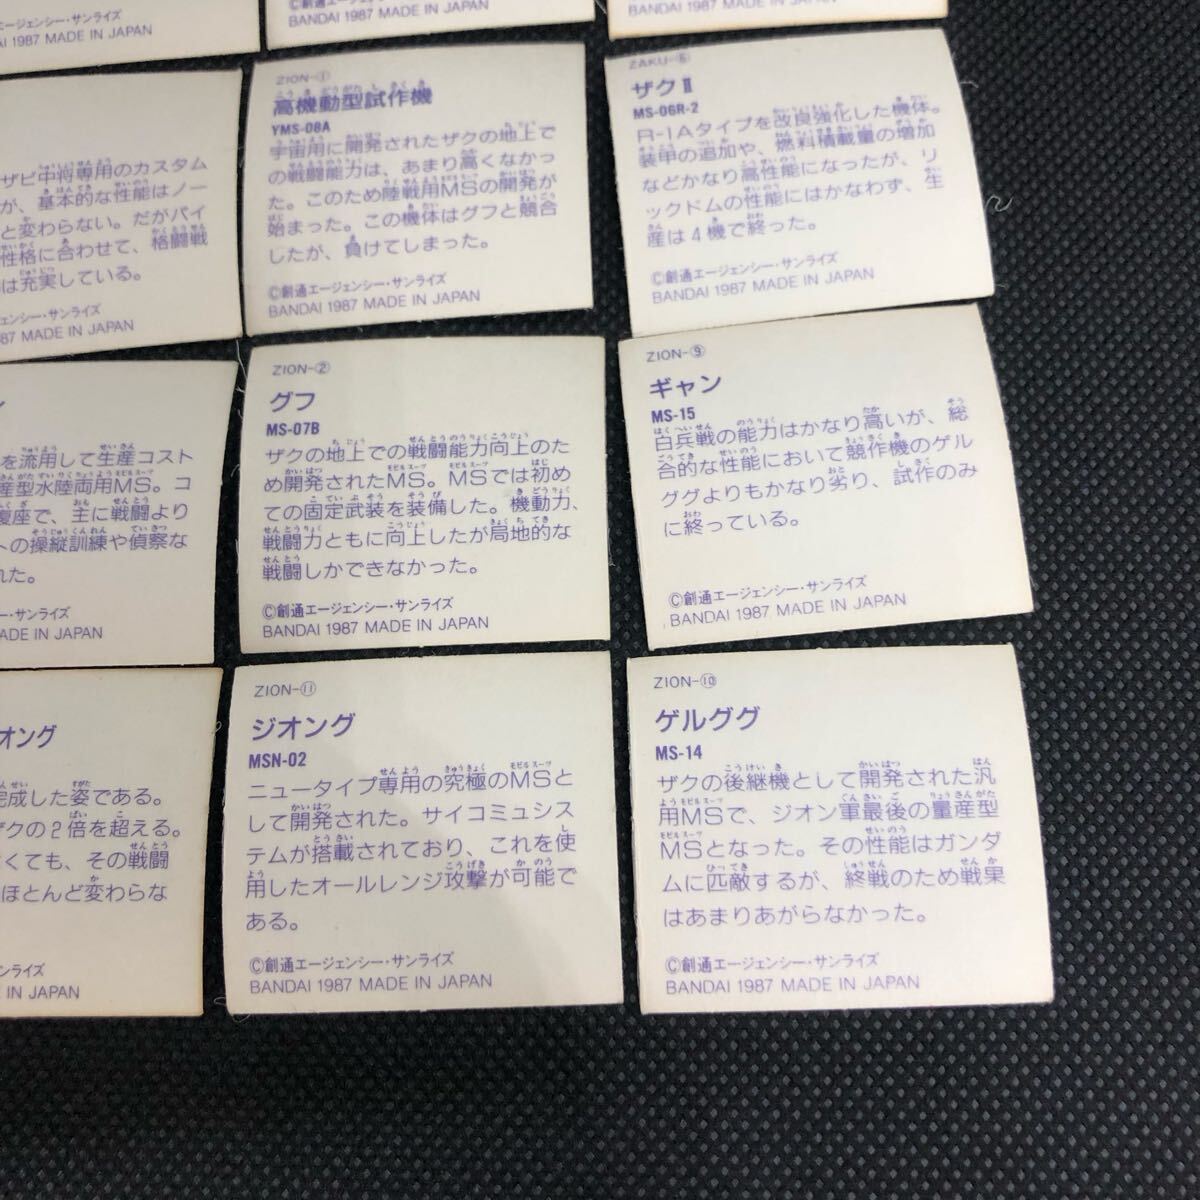 エージェンシー・サンライズ
BANDAI 1987 MADE IN JAPAN
©創通エージェンシー・サンライズ
BANDAI 1987 MADE IN JAPAN
BANDAI 1987 MADE IN JAPAN
ザビ中将専用のカスタム
が、基本的な性能はノー
と変わらない。だがパイ
性格に合わせて、格闘戦
は充実している。
ージェンシー・サンライズ
87 MADE IN JAPAN
ZION-①
高機動型試作機
YMS-08A
宇宙用に開発されたザクの地上で
の戦闘能力は、あまり高くなかっ
た。このため陸戦用MSの開発が
始まった。この機体はグフと競合
したが、負けてしまった。
©創通エージェンシー・サンライズ
BANDAI 1987 MADE IN JAPAN
ZAKU-⑥
ザクⅡ
MS-06R-2
R-1Aタイプを改良強化した機体。
装甲の追加や、燃料積載量の増加
などかなり高性能になったが、リ
ックドムの性能にはかなわず、生
産は4機で終った。
©創通エージェンシー・サンライズ
BANDAI 1987 MADE IN JAPAN
を流用して生産コスト
産型水陸両用MS。コ
複座で、主に戦闘より
トの操縦訓練や偵察な
れた。
ージェンシー・サンライズ
ADE IN JAPAN
ZION-②
グフ
MS-07B
ザクの地上での戦闘能力向上のた
め開発されたMS。MSでは初め
ての固定武装を装備した。機動力、
戦闘力ともに向上したが局地的な
戦闘しかできなかった。
©創通エージェンシー・サンライズ
BANDAI 1987 MADE IN JAPAN
ZION-⑨
ギャン
MS-15
白兵戦の能力はかなり高いが、総
合的な性能において競作機のゲル
ググよりもかなり劣り、試作のみ
に終っている。
©創通エージェンシー・サンライズ
BANDAI 1987 MADE IN JAPAN
オング
完成した姿である。
ザクの2倍を超える。
くても、その戦闘
ほとんど変わらな
ンライズ
IN JAPAN
ZION-⑪
ジオング
MSN-02
ニュータイプ専用の究極のMSと
して開発された。サイコミュシス
テムが搭載されており、これを使
用したオールレンジ攻撃が可能で
ある。
©創通エージェンシー・サンライズ
BANDAI 1987 MADE IN JAPAN
ZION-⑩
ゲルググ
MS-14
ザクの後継機として開発された汎
用MSで、ジオン軍最後の量産型
MSとなった。その性能はガンダ
ムに匹敵するが、終戦のため戦果
はあまりあがらなかった。
©創通エージェンシー・サンライズ
BANDAI 1987 MADE IN JAPAN